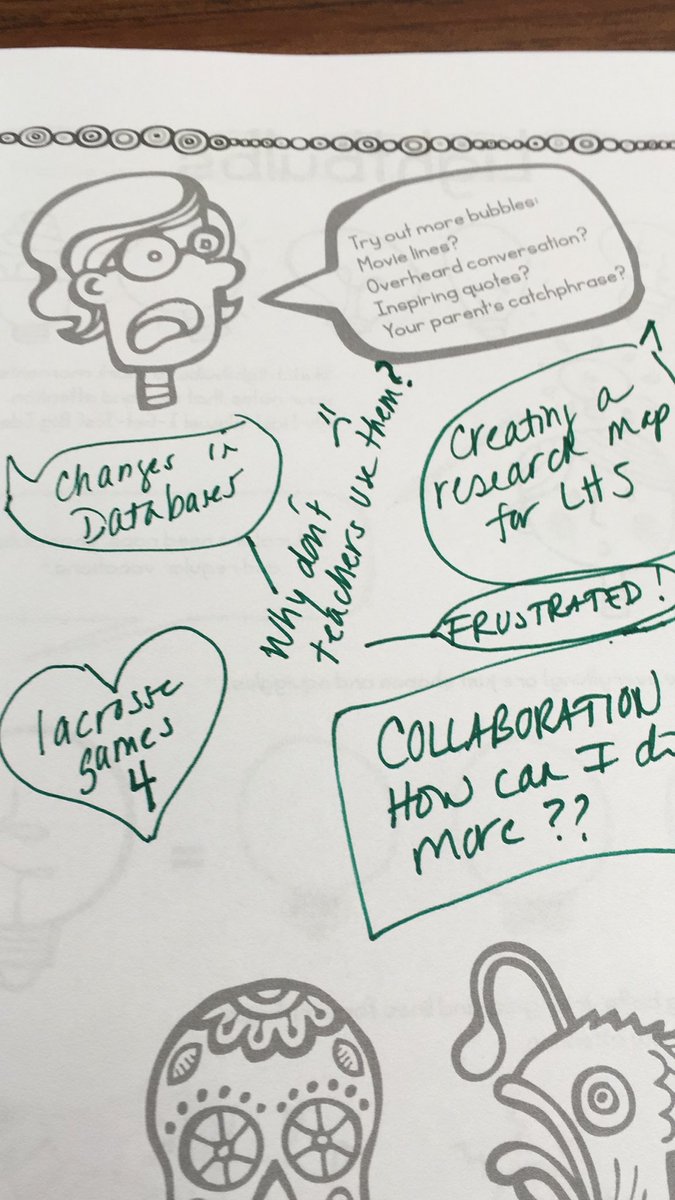 Try out more bubbles:
Movie lines?
Overheard conversation?
Inspiring quotes?
Your parent's catchphrase?
Changes in
Databases
Why don't
teachers use them?
Creating a
research map
for LHS
FRUSTRATED!
lacrosse
games
4
COLLABORATION
How can I
more??